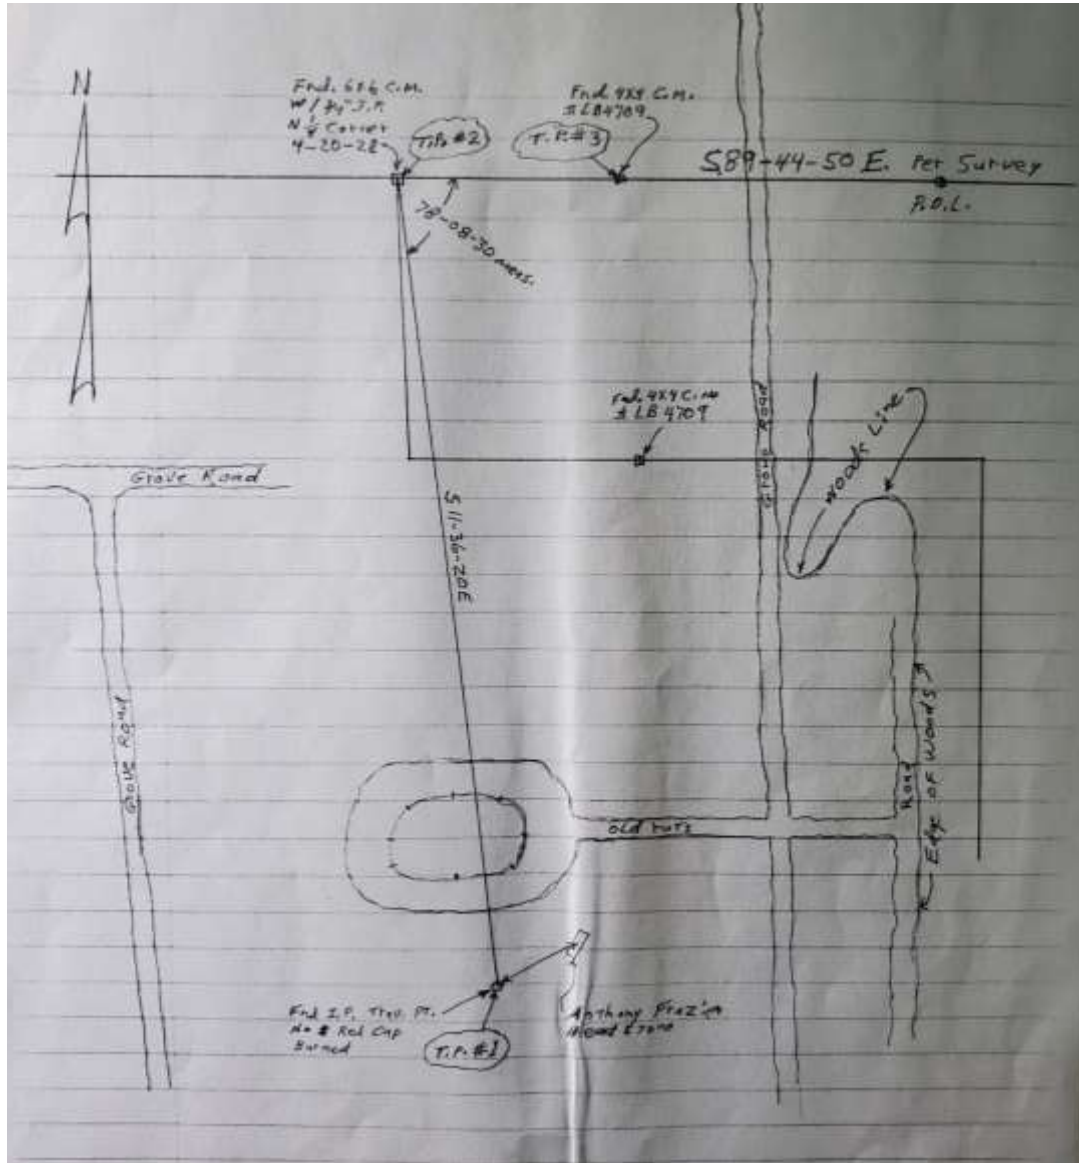 N
Fnd. 6x6 C.M.
N 1/4 Corner
4-20-28
T.P. #2
Fnd. 4x4 C.M.
# LB4709
T.P. #3
S89-44-50 E. Per Survey
P.O.L.
78-08-30 meas.
Fnd. 4x4 C.M
# LB 4709
Grove Road
Woods Line
Grove Road
S 11-36-20E
Grove Road
Road
Edge of Woods
Old
Fnd I.P. Trav. Pt.
No # Red Cap
Burned
T.P. #1
Anthony Frazier
Head Stone